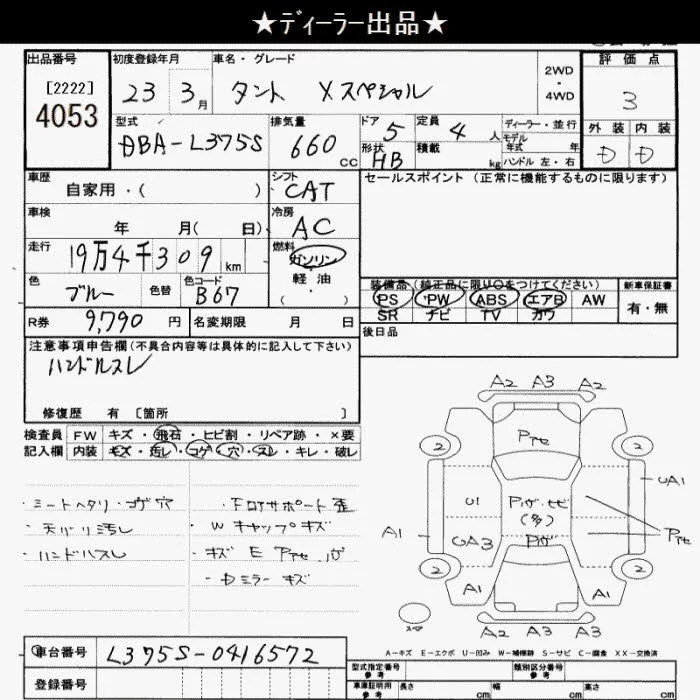 ★ディーラー出品★
出品番号
[2222]
4053
初度登録年月
23 3月
車名・グレード
タント Xスペシャル
2WD
・
4WD
評価点
3
外装 内装
D D
型式
DBA-L375S
排気量
660 cc
ドア 5
形状 HB
定員 4 人
積載 kg
ディーラー・並行
モデル
年式 年
ハンドル 左・右
車歴
自家用・( )
シフト
CAT
セールスポイント(正常に機能するものに限ります)
車検
年 月( 日)
冷房
AC
走行
19万4千309 km
燃料
ガソリン
軽油
( ・ )
色
ブルー
色替
色コード
B67
装備品(純正品に限り○をつけてください)
PS PW ABS エアB AW
SR ナビ TV カワ
新車保証書
有・無
R券 9,790 円
名変期限 月 日
後日品
注意事項申告欄(不具合内容等は具体的に記入して下さい)
ハンドルスレ
修復歴 有 〔箇所 〕
検査員
記入欄
FW キズ・飛石・ヒビ割・リペア跡・×要
内装 キズ・汚レ・コゲ・穴・スレ・キレ・破レ
・シートヘタリ・コゲ穴
・天バリ汚レ
・ハンドルスレ
・FロアサポートÂ歪
・W キャップキズ
・キズ E Pアセ
・Dミラー キズ
A2 A3 A2
Pアセ
2 2
U1
UA1
A1
UA3
(多)
Pアセ
2 2
A1 A1
スペア
A2 A3 A3
A-キズ E-エクボ U-凹み W-補修跡 S-サビ C-腐食 XX-交換済
車台番号 L375S-0416572
登録番号
型式指定番号
参考
類別区分番号
参考
車庫証明用
参考
長さ cm 幅 cm 高さ cm